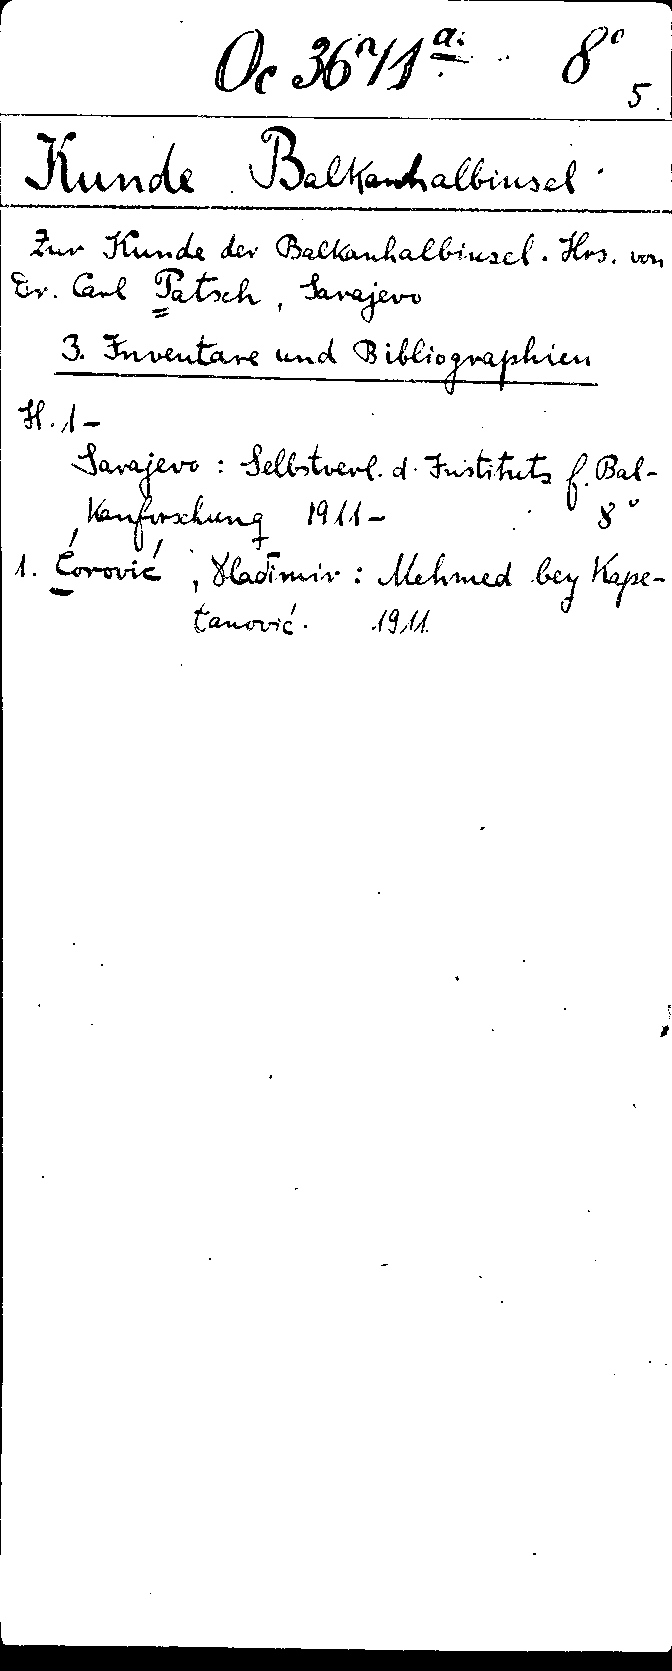 Oc 3671 a. 8°
5
Kunde Balkanhalbinsel
Zur Kunde der Balkanhalbinsel. Hrs. von
Dr. Carl Patsch, Sarajevo
3. Inventare und Bibliographien
H. 1-
Sarajevo: Selbstverl. d. Instituts f. Bal-
kanforschung 1911- 8°
1. Ćorović, Vladimir: Mehmed bey Kape-
tanović. 1911.